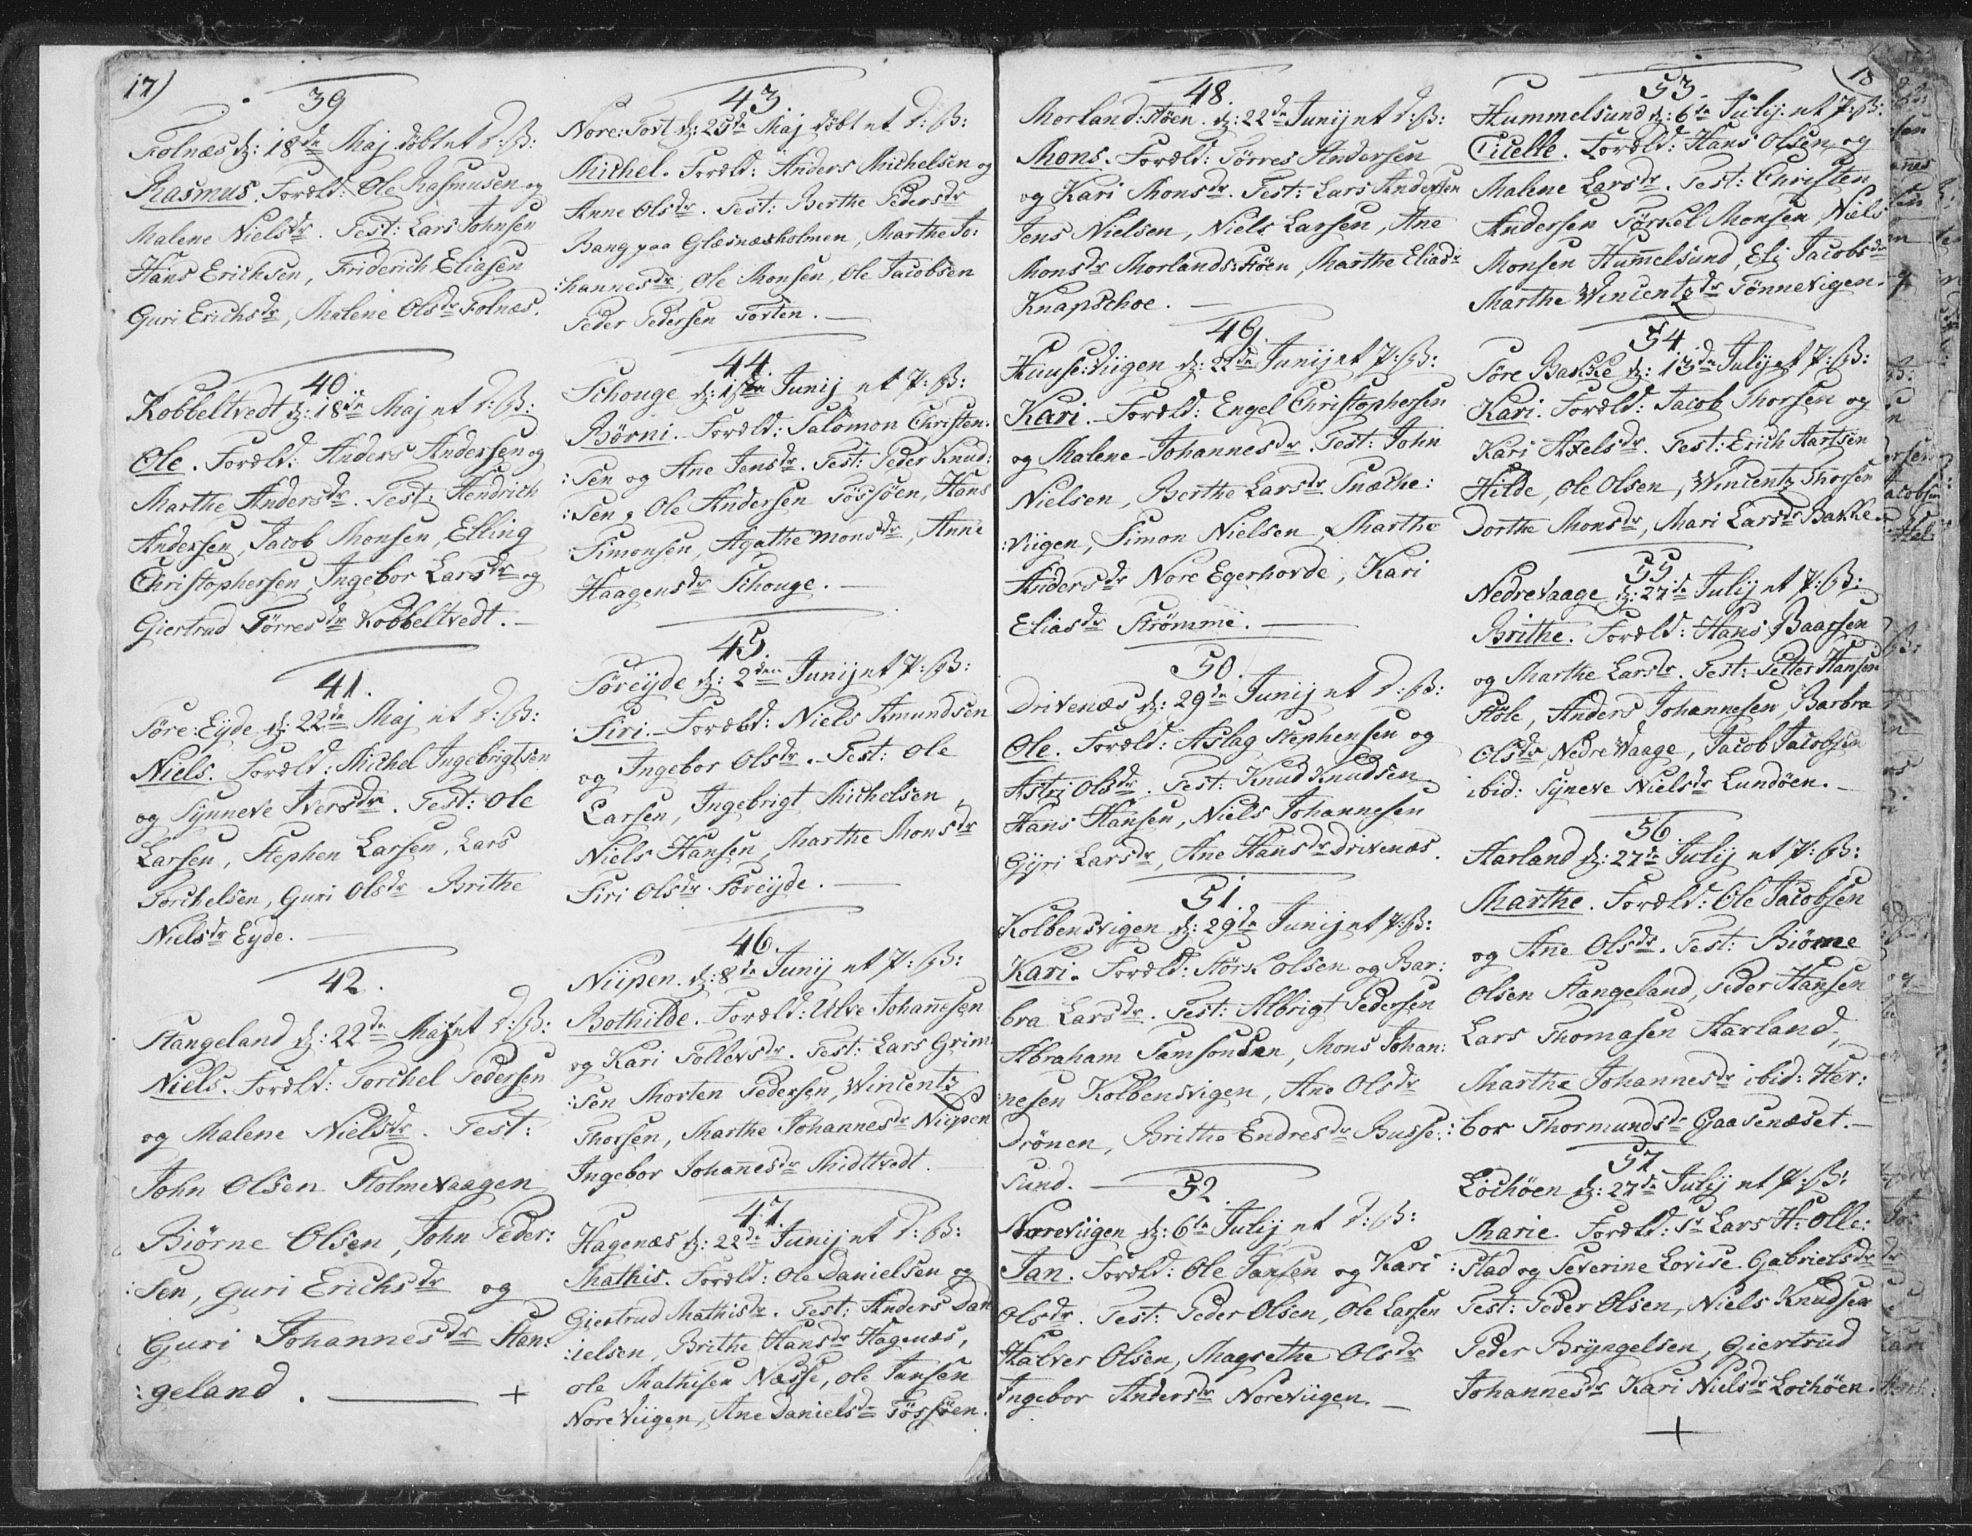 17)
39
Folnæs d: 18de Maj döbt et D: B:
Rasmus. Foræld: Ole Rasmusen og
Malene Nielsdr. Test: Lars Johnsen
Hans Erichsen, Friderich Eliasen
Guri Erichsdr, Malene Olsdr Folnæs.
40.
Kobbeltvedt d: 18de Maj et D: B:
Ole. Foræld: Anders Andersen og
Marthe Andersdr. Test: Hendrich
Andersen, Jacob Monsen, Elling
Christophersen, Ingebor Larsdr og
Giertrud Törresdr Kobbeltvedt. –
41.
Söre Eyde d: 22de Maj et D: B:
Niels. Foræld: Michel Ingebrigtsen
og Synneve Iversdr. Test: Ole
Larsen, Stephen Larsen, Lars
Torchelsen, Guri Olsdr Brithe
Nielsdr Eyde. —
42.
Stangeland d: 22de Maj et D: B:
Niels. Foræld: Torchel Pedersen
og Malene Nielsdr. Test:
John Olsen Stolmevaagen
Biörne Olsen, John Peder:
:sen, Guri Erichsdr og
Guri Johannesdr Stan:
:geland. — +
43.
Nore: Tost d: 25de Maj döbt et D: B:
Michel. Foræld: Anders Michelsen og
Anne Olsdr. Test: Berthe Pedersdr
Bang paa Glæsnæsholmen, Marthe Jo:
:hannesdr, Ole Monsen, Ole Jacobsen
Peder Pedersen Tosten. —
44.
Schouge d: 1ste Junij et P: B:
Börni. Foræld: Salomon Christen:
:sen og Ane Jensdr. Test: Peder Knud:
:sen, Ole Andersen Tössöen, Hans
Simonsen, Agathe Monsdr, Anne
Haagensdr Schouge. —
45.
Söreyde d: 2den Junij et P: B:
Siri. Foræld: Niels Amundsen
og Ingebor Olsdr. Test: Ole
Larsen, Ingebrigt Michelsen,
Niels Hansen, Marthe Monsdr
Siri Olsdr Söreyde. —
46.
Niipen. d: 8de Junij et P: B:
Bothilde. Foræld: Ulve Johanesen
og Kari Tollevsdr. Test: Lars Grim:
:sen Morten Pedersen, Wincentz
Thorsen, Marthe Johannesdr Niipen
Ingebor Johanesdr Midttvedt.
47.
Hagenæs d: 22de Junij et D: B:
Mathis. Foræld: Ole Danielsen og
Giertrud Mathisdr. Test: Anders Dan
:ielsen, Brithe Hansdr Hagenæs,
Ole Mathisen Næsse, Ole Jansen
Nore Viigen, Ane Danielsdr Tössöen.
48.
Morland: Stöen. d: 22de Junij et D: B:
Mons. Foræld: Törres Andersen
og Kari Monsdr. Test: Lars Andersen
Jens Nielsen, Niels Larsen, Ane
Monsdr Morlands: Stöen, Marthe Eliasdr
Knapschoe. —
49.
Huuse: Viigen d: 22de Junij et P: B:
Kari. Foræld: Engel Christophersen
og Malene Johannesdr. Test: John
Nielsen, Berthe Larsdr Snæche:
:viigen, Simon Nielsen, Marthe
Andersdr Nore Egerhovde, Kari
Eliasdr Strömme. —
50.
Drivenæs d: 29de Junij et D: B:
Ole. Foræld: Aslag Stephensen og
Astri Olsdr. Test: Knud Knudsen
Hans Hansen, Niels Johannesen
Gyri Larsdr, Ane Hansdr Drivenæs.
51.
Kolbensvigen d: 29de Junij et P: B:
Kari. Foræld: Störk Olsen og Bar:
bra Larsdr. Test: Albrigt Pedersen
Abraham Samsonsen, Mons Johan:
:nesen Kolbensvigen, Ane Olsdr
Drönen, Brithe Endresdr Busse:
sund. —
52.
Noreviigen d: 6te Julij et D: B:
Jan. Foræld: Ole Jansen og Kari
Olsdr. Test: Peder Olsen, Ole Larsen
Halver Olsen, Magrethe Olsdr
Ingebor Andersdr Noreviigen. —
18
53.
Hummelsund d: 6te Julij: et P: B:
Cicelle. Foræld: Hans Olsen og
Malene Larsdr. Test: Christen
Andersen Törkel Monsen, Niels
Monsen Humelsund, Eli Jacobsdr
Marthe Wincentzdr Tönnevigen.
54.
Söre Bakke d: 13de Julij et P: B:
Kari. Foræld: Jacob Thorsen og
Kari Axelsdr. Test: Erich Aartsen
Hilde, Ole Olsen, Wincentz Thorsen
Dorthe Monsdr, Mari Larsdr Bakke.
55
Nedrevaage d: 27de Julij et P: B:
Brithe. Foræld: Hans Baarsen
og Marthe Larsdr. Test: Petter Hansen
Stöle, Anders Johannesen, Barbra
Olsdr Nedre Vaage, Jacob Jacobsen
ibid: Syneve Nielsdr Lundöen. –
56.
Aarland d: 27de Julij et P: B:
Marthe. Foræld: Ole Jacobsen
og Ane Olsdr. Test: Biörne
Olsen Stangeland, Peder Hansen
Lars Thomasen Aarland,
Marthe Johannesdr ibid: Her:
:bor Thormundsdr Gaasenæset. –
57.
Lochöen d: 27de Julij et P: B:
Marie. Foræld: Sr Lars H: Olle:
:stad og Severine Lovise Gabrielsdr
Test: Peder Olsen, Niels Knudsen
Peder Bryngelsen, Giertrud
Johannesdr Kari Nielsdr Lochöen.
+